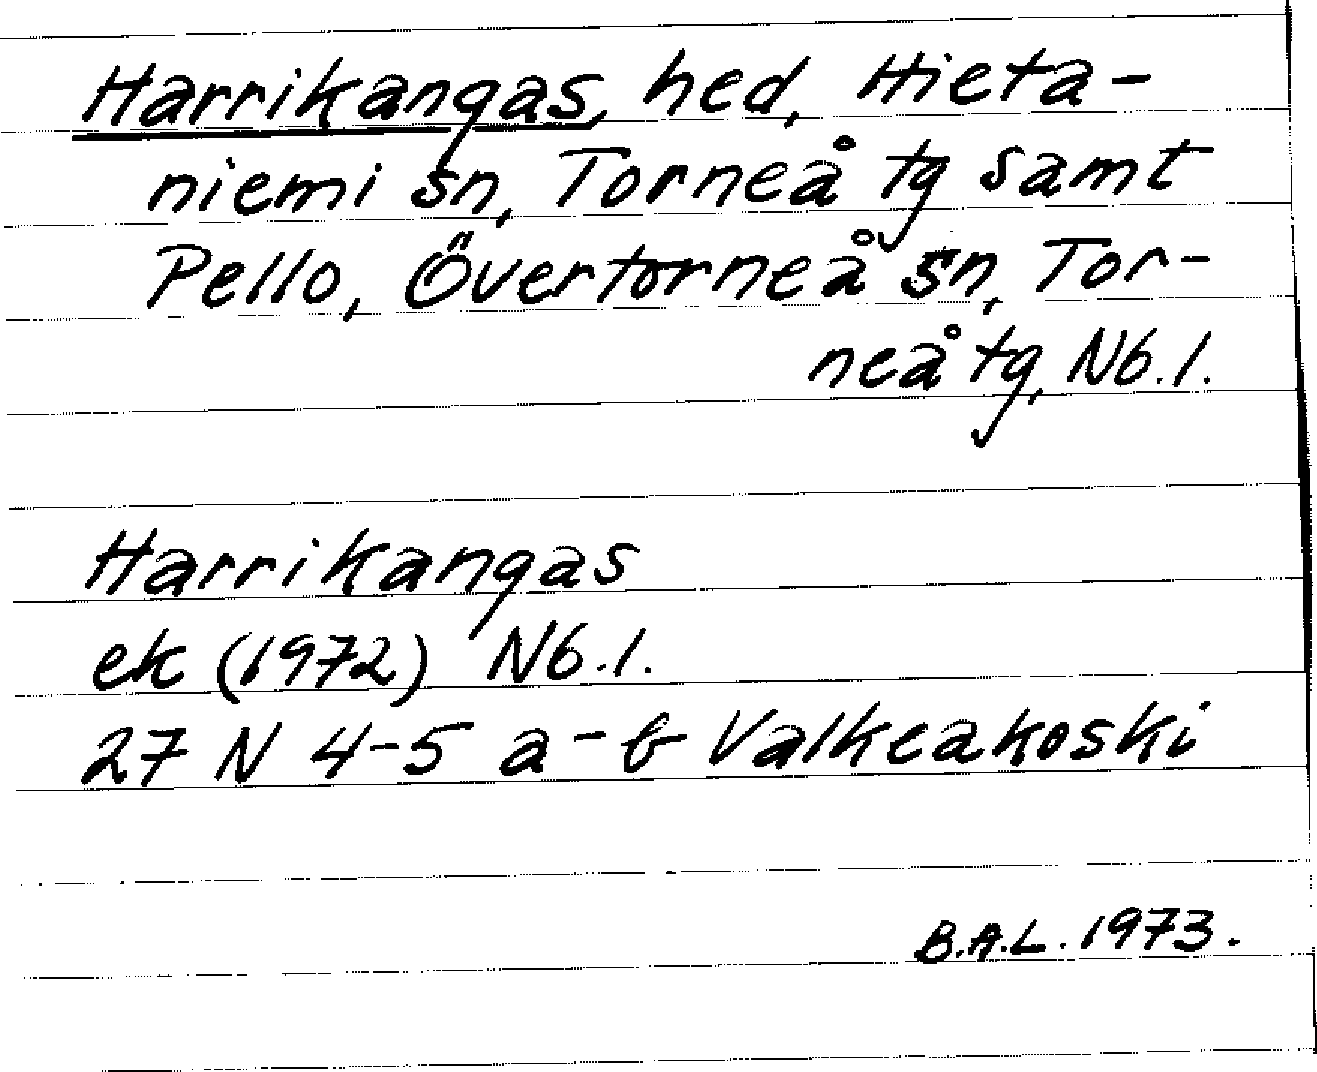 Harrikangas, hed, Hieta-
niemi sn, Torneå tg samt
Pello, Övertorneå sn, Tor-
neå tg, Nb.l.
Harrikangas
ek (1972) Nb.l.
27 N 4-5 a-b Valkeakoski
B.A.L. 1973.